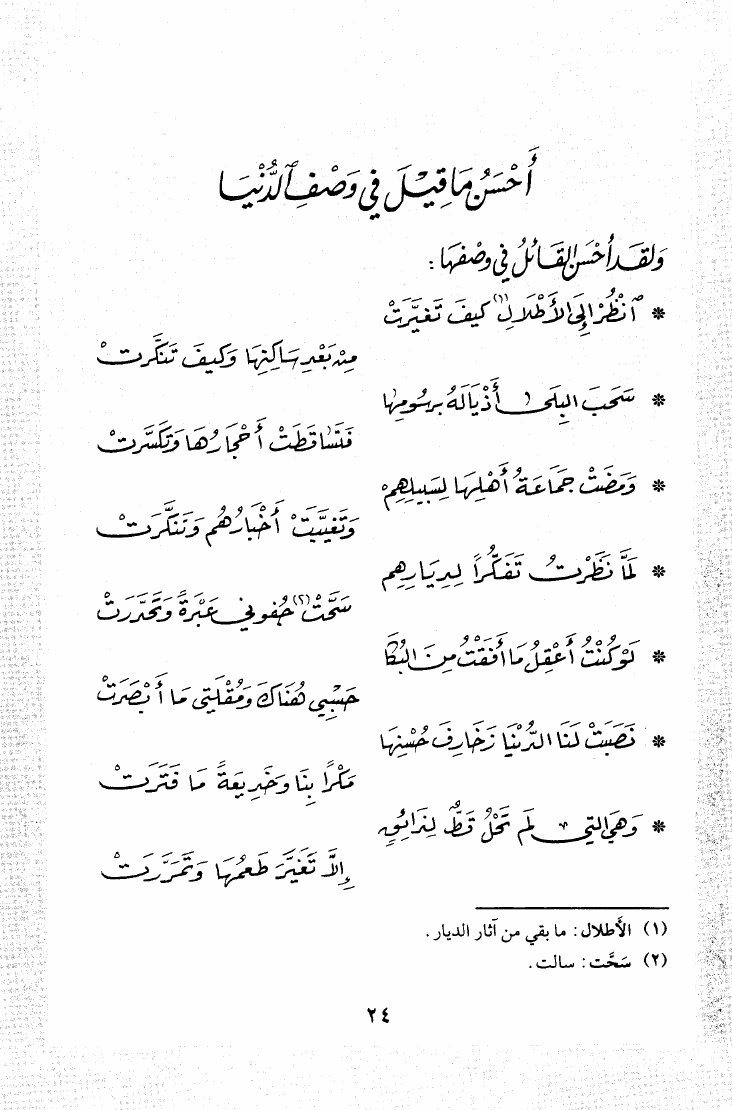 أَحْسَنُ مَا قِيْلَ فِي وَصْفِ ٱلدُّنْيَا
وَلَقَد أَحْسَنَ القَائلُ في وصْفهَا :
* ٱنْظُرْ إِلَى الأَطْلَالِ (١) كَيفَ تَغيَّرَتْ
مِنْ بَعْدِ سَاكِنِهَا وَكَيفَ تَنَكَّرتْ
* سَحَبَ البِلَى أَذْيَالَهُ برسُومِهَا
فَتَسَاقَطَتْ أَحْجَارُهَا وَتَكَسَّرتْ
* وَمَضَتْ جَمَاعَةُ أَهْلِهَا لِسَبِيلِهِمْ
وَتَغَيَّبَتْ أَخْبَارُهُم وَتَنَكَّرَتْ
* لَمَّا نَظَرْتُ تَفَكُّراً لِدِيَارِهِم
سَحَّتْ (٢) جُفوني عَبْرَةً وَتَحَدَّرَتْ
* لَوْ كُنْتُ أَعْقِلُ مَا أَفَقْتُ مِنَ البُكَا
حَسْبِي هُنَاكَ وَمُقْلَتِي مَا أَبْصَرَتْ
* نَصَبَتْ لَنَا الدُّنْيَا زَخَارِفَ حُسْنِهَا
مَكْرًا بِنَا وَخَدِيعَةً مَا فَتَرَتْ
* وَهيَ التي لَم تَحْلُ قَطُّ لِذَائِقٍ
إِلاَّ تَغَيَّرَ طَعمُهَا وَتَمَرَّرَتْ
(١) الأَطلال : ما بقي من آثار الديار .
(٢) سَحَّت : سالت .
٢٤